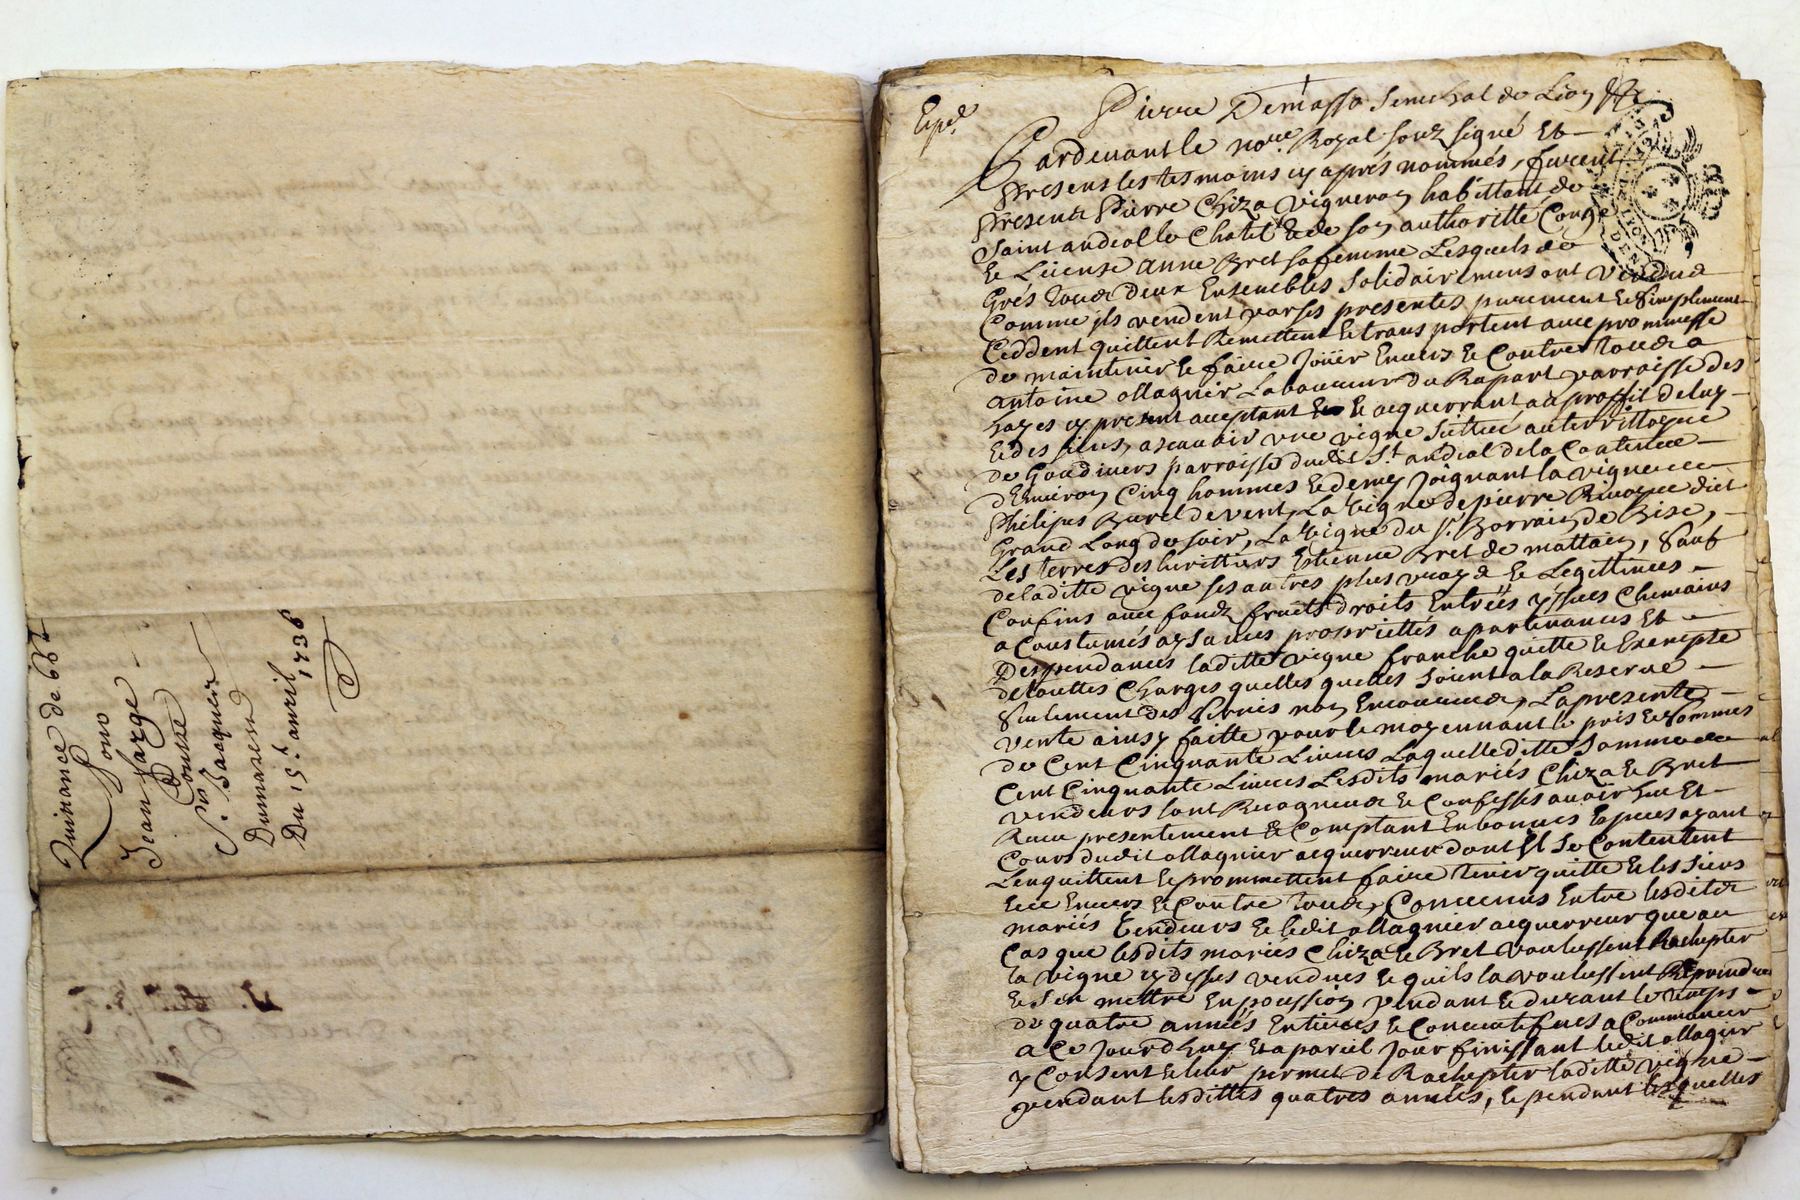 Quittance de 66lt
Pour
Jean farge
Contre
Sr. Jacques
Dumarend
Du 15e. auril 1736
Expé.
Pierre Demasso senechal de Lion
Pardeuantle nore. Royal souz signé Et
Presens les tesmoins cy aprés nommés, furent
Presentz Pierre Chiza vigneron habittant de
Saint andeol le Chatel & de son authoritté Congé
Et License anne Bret sa femme Lesquels de
Grés tous deux Ensembles solidairemens ont vendus
Comme jls vendent par ses presentes purement Et simplement
Ceddent quittent Remettent Et transportent auec prommesse
de maintenir Et faire Joüir Enuers Et Contre tous a
antoine ollagnier Laboureur du Rapart parroisse des
hayes cy present acceptant Et acquerrant au proffit de luy
Et des siens, ascauoir vne vigne sittuée au territtoyre
de Goudiuers parroisse dudit St. andeol de la Contenue
d'Enuiron Cinq hommes Et demy Joignant la vigne de
Philipes Burel de vent, La vigne de pierre Rivoyre dict
Grand Long de soir, La vigne du sr. Borrain de Bise,
Les terres des heritiers Estienne Bret de mattain, sauf
de laditte vigne ses autres plus vrays Et Legittimes
Confins auec fondz fruits droits Entréés yssues Chemains
a Coustumés aysances proprietés apartenances Et
Despendances laditte vigne franche quitte Et Exempte
de touttes Charges quelles quelles soient a la Reserue
seulement des seruis non Encourus, La presente
vente ainsy faitte pour Le moyennant le pris Et sommes
de Cent Cinquante Liures Laquelle ditte somme de
Cent Cinquante Liures Lesdits mariés Chiza Et Bret
vendeurs sont Recogneus Et Confessés auoir heu Et
Receu presentement Et Comptant En bonnes Especes ayant
Cours dudit ollagnier acquerreur dont Jl se Contentent
L'en quittent Et prommettent faire tenir quitte Et les siens
Enuers Et Contre tous, Conuenus Entre lesdits
mariés vendeurs Et ledit ollagnier acquerreur que au
Cas que lesdits mariés Chiza Et Bret voulussent Rachepter
la vigne cy dessus vendues Et quils la voulussent Reprendre
Et s'en mettre En possion pendant Et durant le temps
de quatre annéés Entieres Et Consecutifues a Commencer
a Ce Jourdhuy Et a pareil Jour finissant ledit ollagnier
y Consent Et leur permet de Rachepter laditte vigne
pendant lesdittes quatres annéés, Et pendant lesquelles